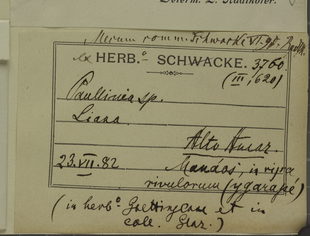 Determ. L. Radlkofer.
Merum comm. Schwacke VI. 95. Radlk.
Ex HERB.º SCHWACKE. 3760
(III, 620)
Paullinia sp.
Liana
Alto Amaz.
23.VII.82 Manáos, in ripa
rivulorum (ygarapé)
(in herbº Goettingense et in
coll. Glaz.)